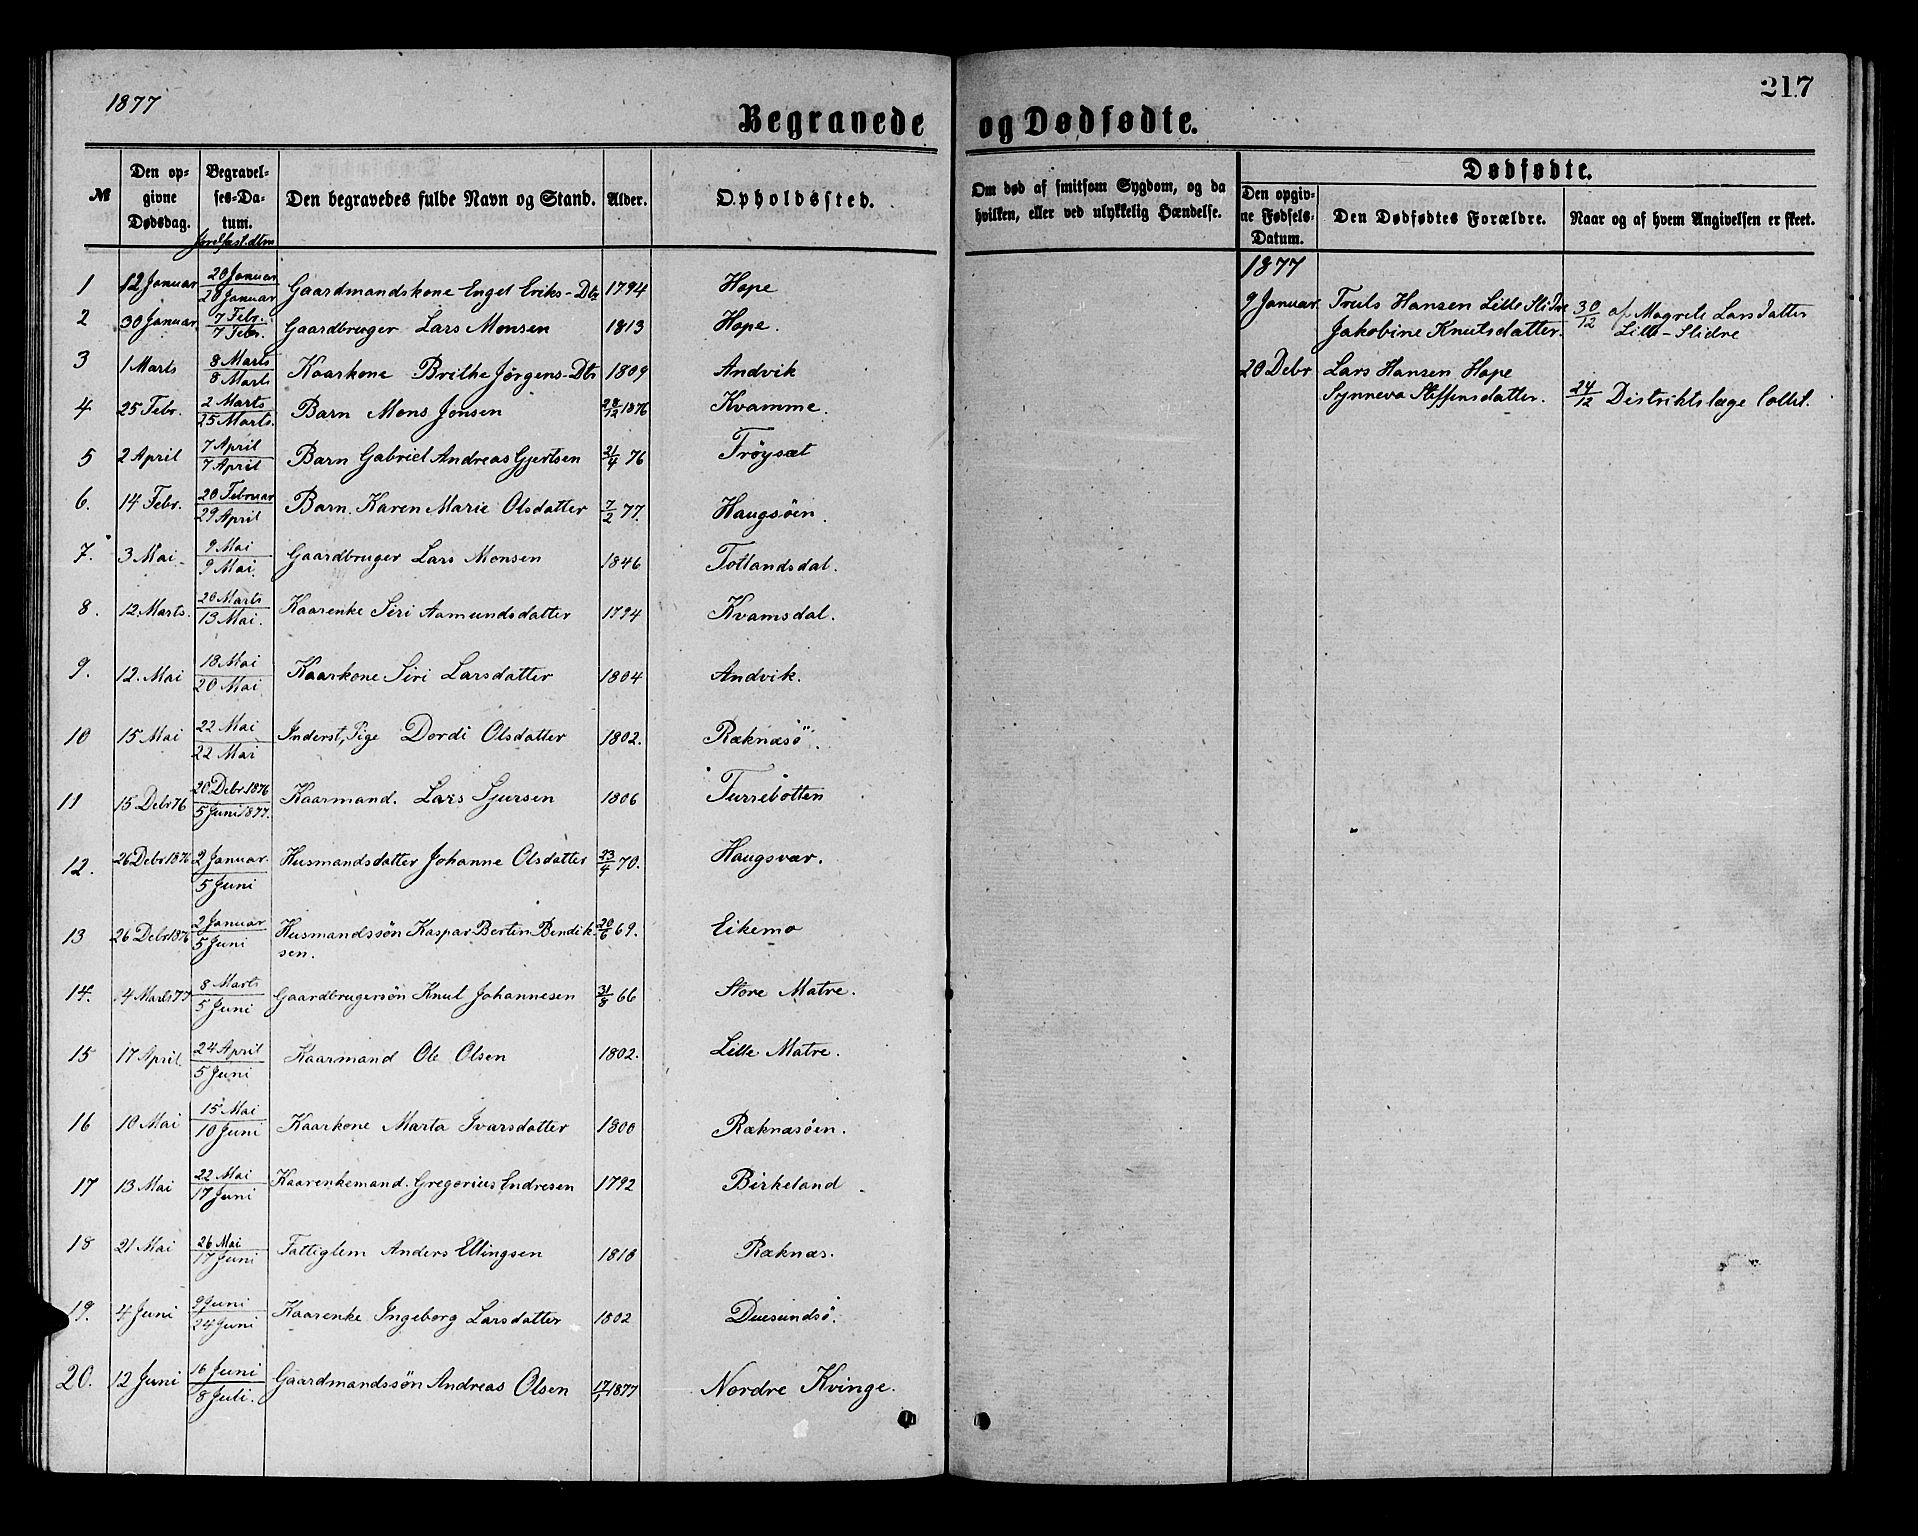 1877
217
Begravede og Dødfødte.
№ Den opgivne Dødsdag. Begravelses-Datum. Jordfæst.dtm Den begravedes fulde Navn og Stand. Alder. Opholdssted.
Om død af smitsom Sygdom, og da hvilken, eller ved ulykkelig Hændelse.
Dødfødte.
Den opgivne Fødsels-Datum. Den Dødfødtes Forældre. Naar og af hvem Angivelsen er skeet.
1 12 Januar 20 Januar / 20 Januar Gaardmandskone Engel Eriks-Dtr 1794 Hope
2 30 Januar 7 Febr. / 7 Febr. Gaardbruger Lars Monsen 1813 Hope.
3 1 Marts 8 Marts / 8 Marts Kaarkone Brithe Jørgens-Dtr 1809 Andvik
4 25 Febr. 2 Marts / 25 Marts. Barn Mons Jonsen 28/12 1876 Kvamme.
5 2 April 7 April / 7 April Barn Gabriel Andreas Gjertsen 21/4 76 Frøyset
6. 14 Febr. 20 Februar / 29 April Barn. Karen Marie Olsdatter 7/2 77. Haugsøen.
7. 3 Mai 9 Mai / 9 Mai. Gaardbruger Lars Monsen 1846 Totlandsdal.
8. 12 Marts. 20 Marts / 13 Mai. Kaarenke Siri Aamundsdatter 1794 Kvamsdal.
9. 12. Mai 18 Mai / 20 Mai Kaarkone Siri Larsdatter 1804 Andvik.
10 15 Mai 22 Mai / 22 Mai Inderst, Pige Dordi Olsdatter 1802. Ræknæsö.
11 15 Debr 76 20 Debr 1876 / 5 Juni 1877. Kaarmand. Lars Sjursen 1806 Furrebotten
12. 26 Debr 1876 2 Januar. / 5 Juni Husmandsdatter Johanne Olsdatter 23/4 70. Haugsvær.
13 26 Debr 1876 2 Januar / 5 Juni Husmandssøn Kaspar Bertin Bendik-
sen. 20/6 69. Eikemo
14. 4 Marts 77 8 Marts / 5 Juni Gaardbrugersøn Knut Johannesen 31/8 66 Store Matre.
15 17 April 24 April / 5 Juni Kaarmand Ole Olsen 1802. Lille Matre.
16 10 Mai 15 Mai / 10 Juni Kaarkone Marta Ivarsdatter 1800 Ræknæsøen.
17 13 Mai 22 Mai / 17 Juni Kaarenkemand. Gregorius Endresen 1792 Birkeland
18 21 Mai 26 Mai / 17 Juni Fattiglem Anders Ellingsen 1810 Ræknæs.
19. 4 Juni 9 Juni / 24 Juni Kaarenke Ingeborg Larsdatter 1802 Duesundsö.
20. 12 Juni 16 Juni / 8 Juli. Gaardmandssøn Andreas Olsen 1877 Nordre Kvinge.
1877
9 Januar. Truls Hansen Lille Slidre 30/12 af Magrete Larsdatter
Jakobine Knutsdatter. Lille-Slidre
20 Debr Lars Hansen Hope
Synneva Steffensdatter. 24/12 Distriktslæge Collet.